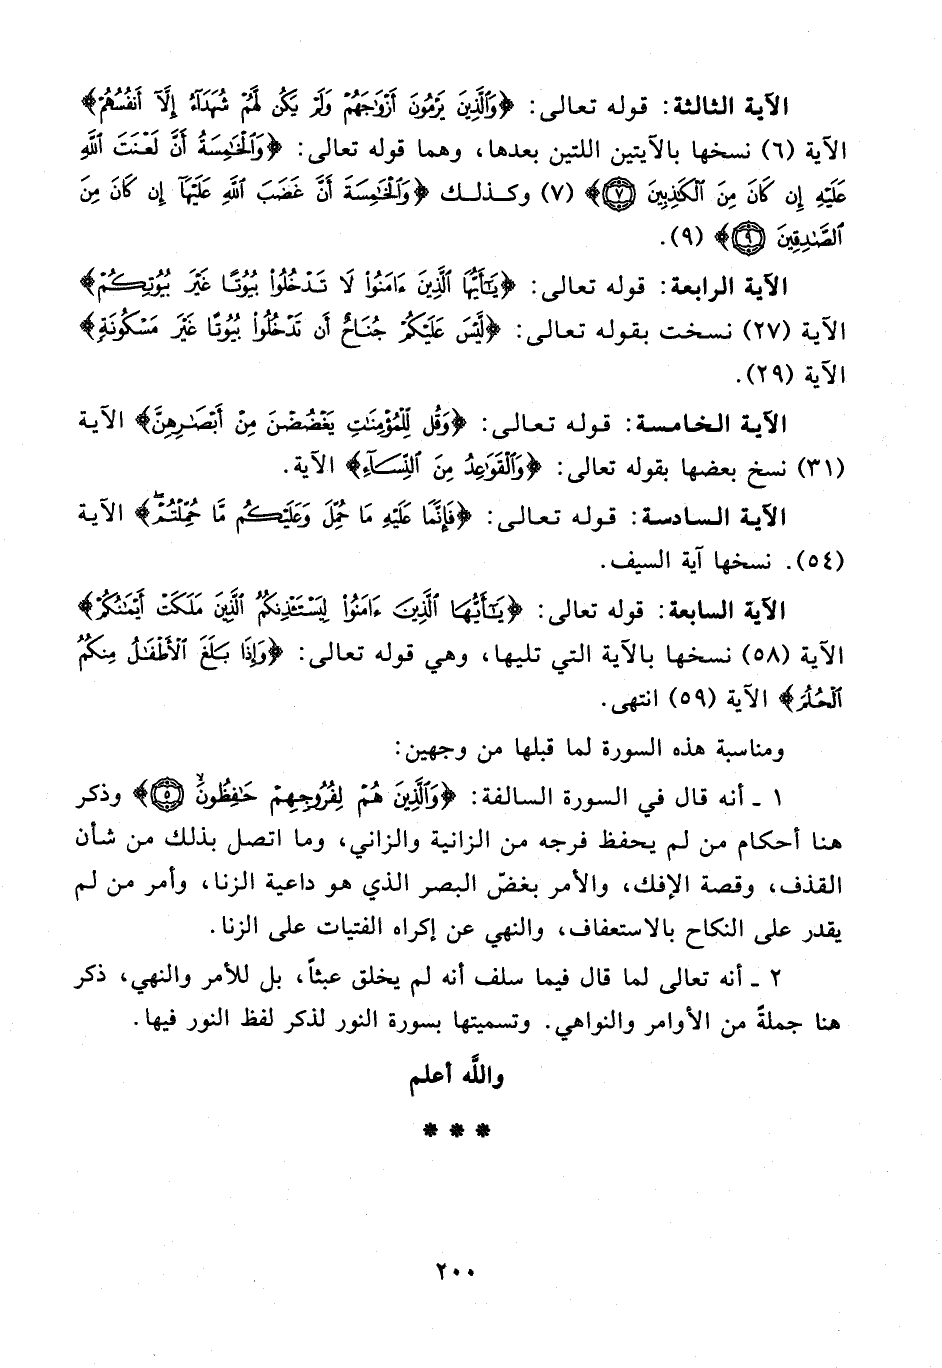 الآية الثالثة: قوله تعالى: ﴿وَالَّذِينَ يَرْمُونَ أَزْوَاجَهُمْ وَلَمْ يَكُن لَّهُمْ شُهَدَاءُ إِلَّا أَنفُسُهُمْ﴾
الآية (٦) نسخها بالآيتين اللتين بعدها، وهما قوله تعالى: ﴿وَالْخَامِسَةُ أَنَّ لَعْنَتَ اللَّهِ
عَلَيْهِ إِن كَانَ مِنَ الْكَاذِبِينَ ٧﴾ (٧) وكذلك ﴿وَالْخَامِسَةَ أَنَّ غَضَبَ اللَّهِ عَلَيْهَا إِن كَانَ مِنَ
الصَّادِقِينَ ٩﴾ (٩).
الآية الرابعة: قوله تعالى: ﴿يَا أَيُّهَا الَّذِينَ ءَامَنُوا لَا تَدْخُلُوا بُيُوتًا غَيْرَ بُيُوتِكُمْ﴾
الآية (٢٧) نسخت بقوله تعالى: ﴿لَّيْسَ عَلَيْكُمْ جُنَاحٌ أَن تَدْخُلُوا بُيُوتًا غَيْرَ مَسْكُونَةٍ﴾
الآية (٢٩).
الآية الخامسة: قوله تعالى: ﴿وَقُل لِّلْمُؤْمِنَاتِ يَغْضُضْنَ مِنْ أَبْصَارِهِنَّ﴾ الآية
(٣١) نسخ بعضها بقوله تعالى: ﴿وَالْقَوَاعِدُ مِنَ النِّسَاءِ﴾ الآية.
الآية السادسة: قوله تعالى: ﴿فَإِنَّمَا عَلَيْهِ مَا حُمِّلَ وَعَلَيْكُم مَّا حُمِّلْتُمْ ۖ﴾ الآية
(٥٤). نسخها آية السيف.
الآية السابعة: قوله تعالى: ﴿يَا أَيُّهَا الَّذِينَ ءَامَنُوا لِيَسْتَـْٔذِنكُمُ الَّذِينَ مَلَكَتْ أَيْمَانُكُمْ﴾
الآية (٥٨) نسخها بالآية التي تليها، وهي قوله تعالى: ﴿وَإِذَا بَلَغَ الْأَطْفَالُ مِنكُمُ
الْحُلُمَ﴾ الآية (٥٩) انتهى.
ومناسبة هذه السورة لما قبلها من وجهين:
١ ـ أنه قال في السورة السالفة: ﴿وَالَّذِينَ هُمْ لِفُرُوجِهِمْ حَافِظُونَ ٥﴾ وذكر
هنا أحكام من لم يحفظ فرجه من الزانية والزاني، وما اتصل بذلك من شأن
القذف، وقصة الإفك، والأمر بغضّ البصر الذي هو داعية الزنا، وأمر من لم
يقدر على النكاح بالاستعفاف، والنهي عن إكراه الفتيات على الزنا.
٢ ـ أنه تعالى لما قال فيما سلف أنه لم يخلق عبثاً، بل للأمر والنهي، ذكر
هنا جملةً من الأوامر والنواهي. وتسميتها بسورة النور لذكر لفظ النور فيها.
واللَّه أعلم
* * *
٢٠٠